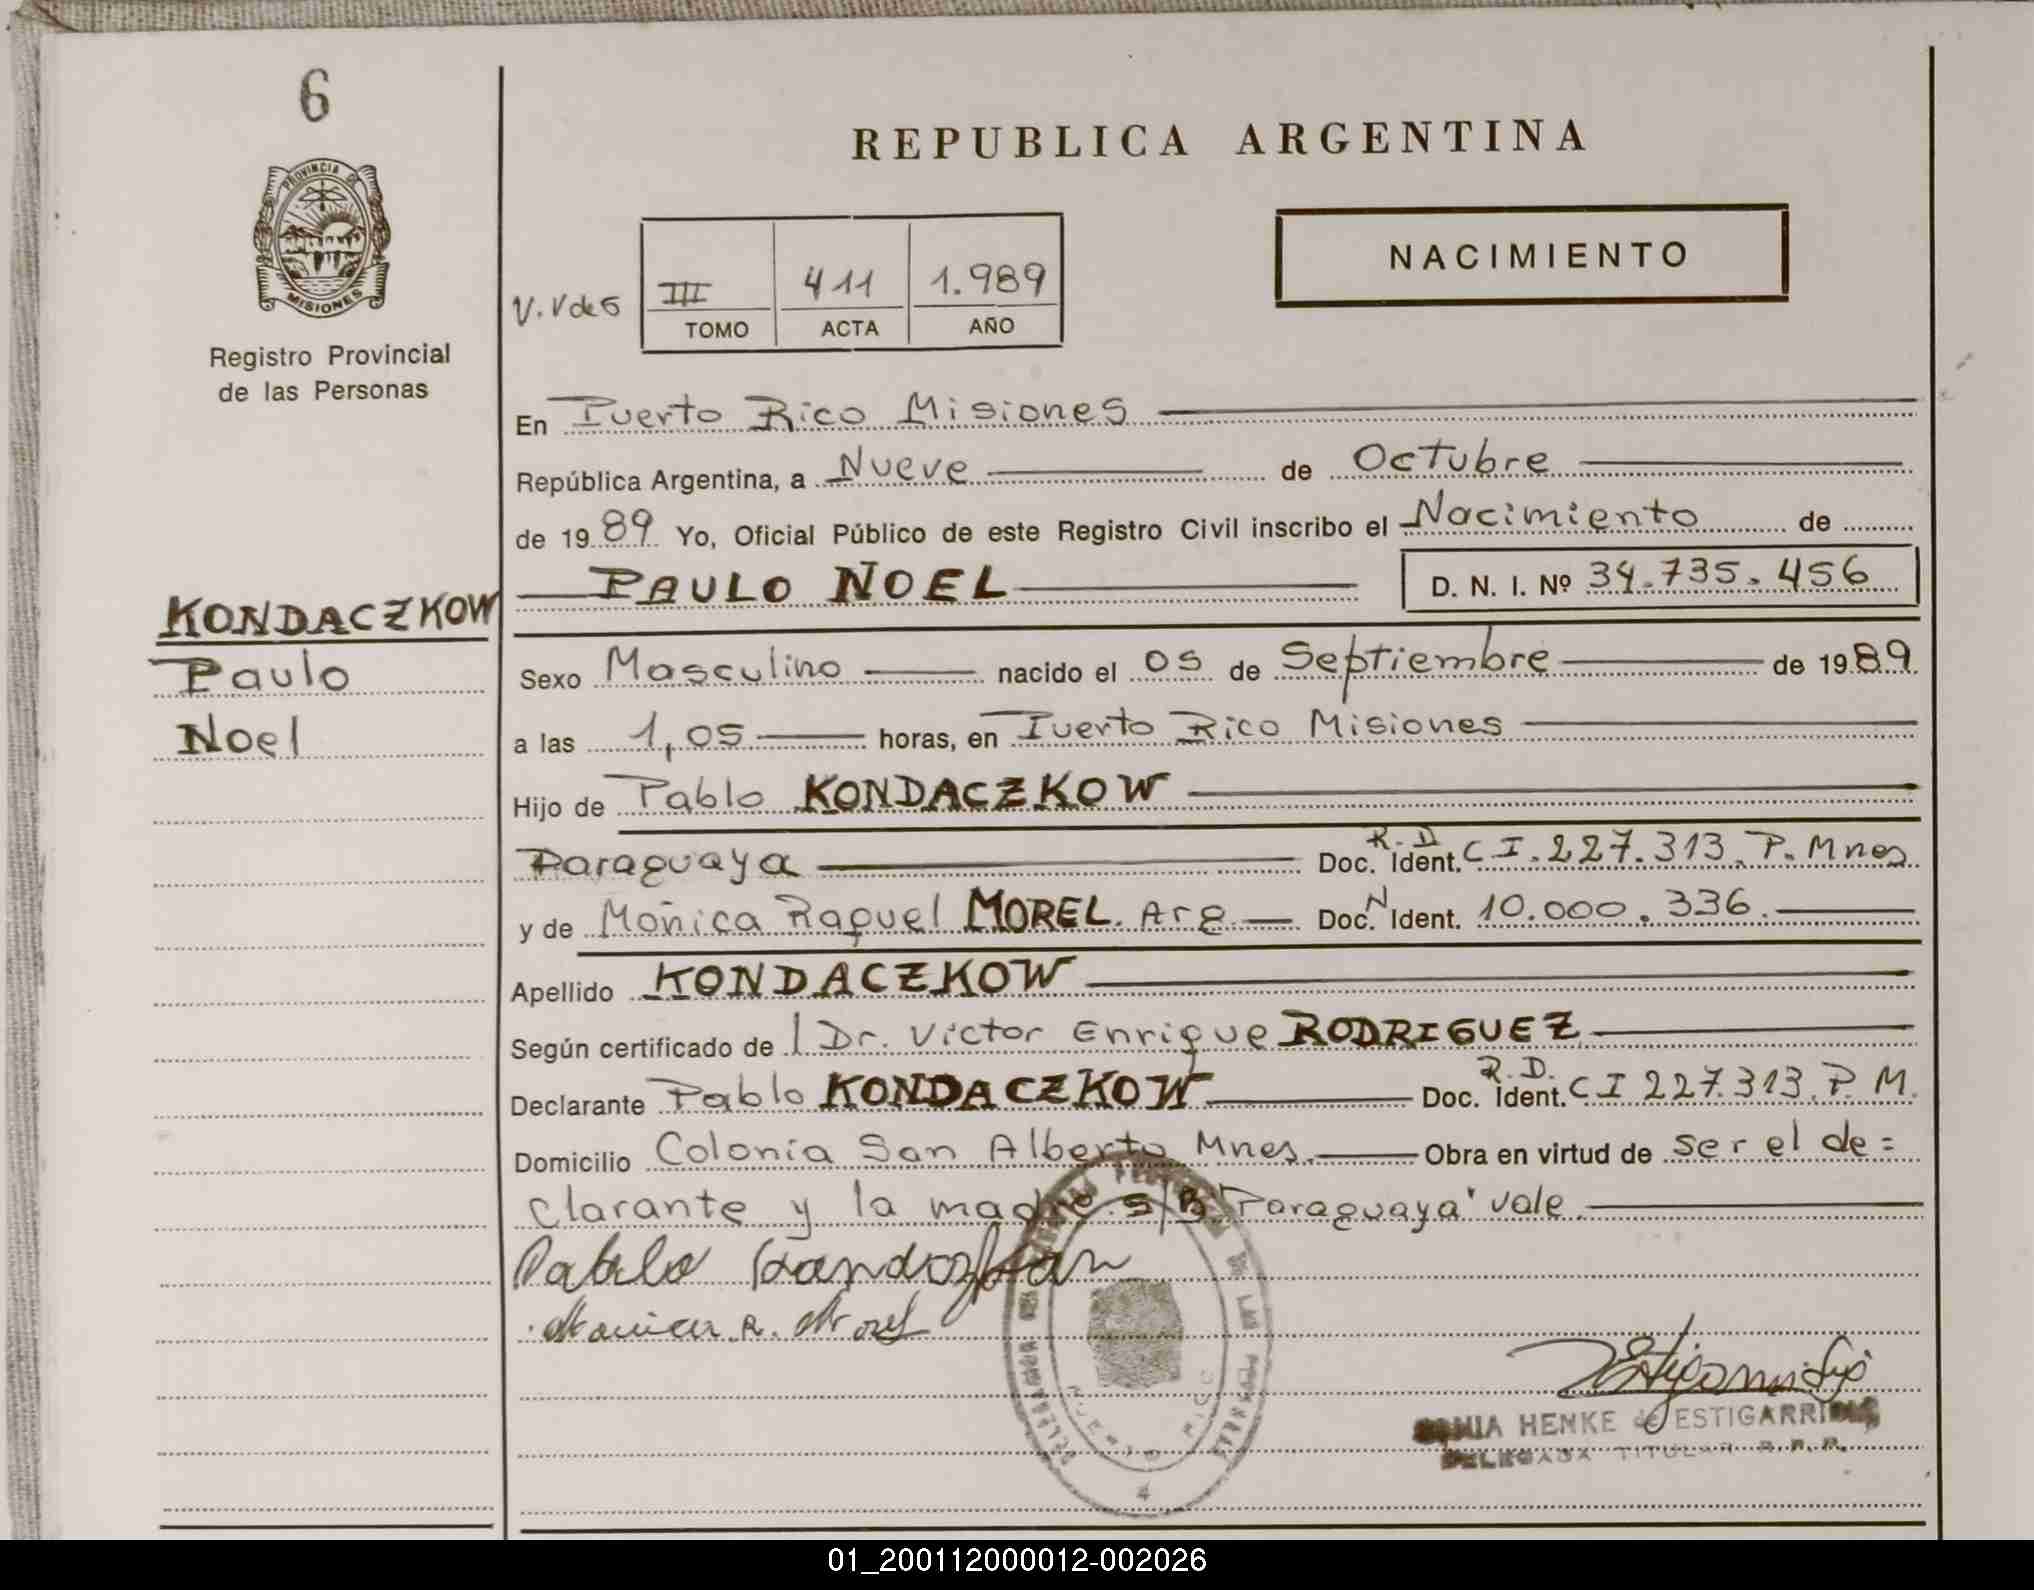 6
PROVINCIA DE
MISIONES
Registro Provincial
de las Personas
KONDACZKOW
Paulo
Noel
REPUBLICA ARGENTINA
NACIMIENTO
III 411 1.989
TOMO ACTA AÑO
En Puerto Rico Misiones
República Argentina, a Nueve de Octubre
de 1989 Yo, Oficial Público de este Registro Civil inscribo el Nacimiento de
PAULO NOEL D. N. I. Nº 34.735.456
Sexo Masculino nacido el 05 de Septiembre de 1989
a las 1,05 horas, en Puerto Rico Misiones
Hijo de Pablo KONDACZKOW
Paraguaya Doc. R.D Ident. C I. 227.313. P. Mnes
y de Mónica Raquel MOREL. Arg Doc. N Ident. 10.000.336.
Apellido KONDACZKOW
Según certificado de l Dr. Victor Enrique RODRIGUEZ
Declarante Pablo KONDACZKOW Doc. R.D. Ident. C I 227.313. P. M.
Domicilio Colonia San Alberto Mnes. Obra en virtud de ser el de=
clarante y la madre. s/B "Paraguaya" vale
Pablo
R. Morel
DE LAS PERSONAS
PUERTO RICO
4
SONIA HENKE de ESTIGARRIBIA
DELEGADA TITULAR R.P.P.
01_200112000012-002026